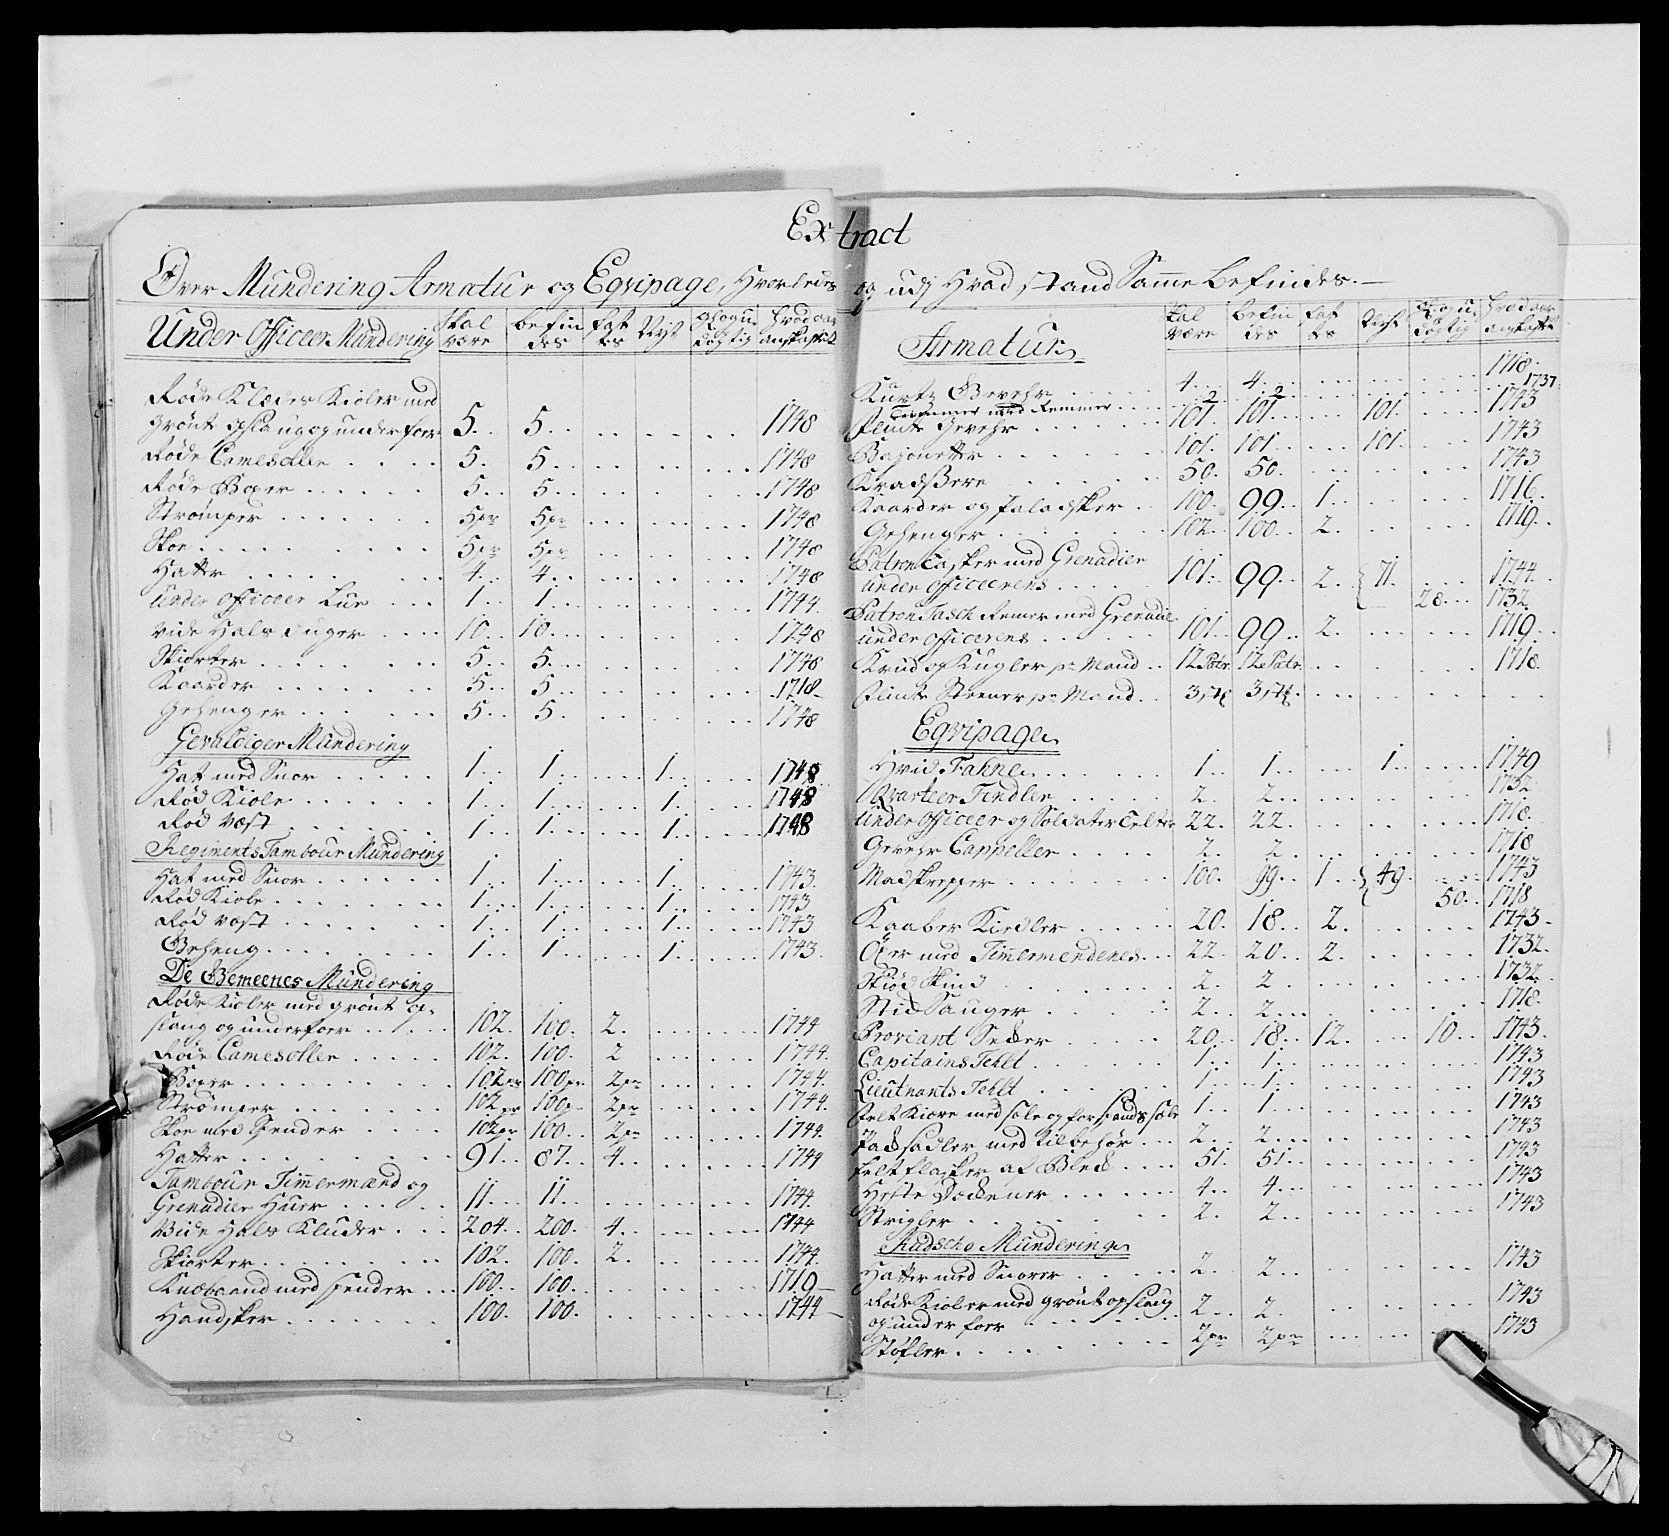 Extract
Over Mundering Armatur og Eqvipage, Hvorledes og udj Hvad stand Samme befindes.
Under Officer Mundering | Skal være | befindes | fattes | Nyt | Ubrugdögtig | Hvad aar anskaffet
Røde Klædes Kioler med
grönt opslaug og underfoer 5. 5. 1748
Røde Camesoller 5. 5. 1748
Røde Boxer 5. 5. 1748
Strömper 5pr 5pr 1748
Skoe 5pr 5pr 1748
Hatte 4. 4. 1748
Under Officeer Lue 1. 1. 1744
Vide Hals duger 10. 10. 1748
Skiorter 5. 5. 1748
Kaarder 5. 5. 1718
Gehenger 5. 5. 1748
Gevaldiger Mundering
Hat med Snor 1. 1. 1. 1748
Rød Kiole 1. 1. 1. 1748
Rød Vest 1. 1. 1. 1748
Regiments Tambour Mundering
Hat med Snor 1. 1. 1. 1743
Rød Kiole 1. 1. 1. 1743
Rød Vest 1. 1. 1. 1743
Geheng 1. 1. 1. 1743
De Gemeenes Mundering
Røde Kioler med grönt op-
slaug og underfoer 102. 100. 2. 1744
Røde Camesoller 102. 100. 2 1744
Boxer 102pr 100pr 2pr 1744
Strømper 102pr 100pr 2pr 1744
Skoe med Spender 102pr 100. 2pr 1744
Hatter 91. 87. 4. 1744
Tambour Timmermænd og
Grenadier Huer 11. 11. 1744
Vide Hals Kluder 204. 200. 4. 1744
Skiorter 102. 100. 2. 1744
Knæbaand med Spender 100. 100. 1719
Handsker 100. 100. 1744
Armatur | Skal være | befindes | fattes | Nyt | Ubrugdögtig | Hvad aar anskaffet
Kurtz Gevehr 4. 4. 1718
med Remmer 2 2 1737
Flint Gevehr 101. 101. 101. 1743
Bajonetter 101. 101. 101. 1743
Kradßere 50. 50. 1743
Kaarder og falasker 100. 99. 1. 1716
Gehenger 102. 100. 2. 1719
Patron Tasker med Grenadier
under officerens 101. 99. 2. 71. 1744
28. 1732
Patron Tasch Remer med Grenadier
under officerens 101. 99. 2. 1719
Krud og Kugler pr Mand 12 Patr. 12 Patr. 1718
Flint Steener pr Mand 3 stk 3 stk
Eqvipage
Hvid Fahne 1. 1. 1. 1749
Qvarteer Findler 2. 2. 1732
Under Officeer og Soldater Telte 22. 22. 1718
Gevehr Cappeller 2. 2. 1718
Madskrepper 100. 99. 1. 49. 1743
50. 1718
Kaaber Kiedler 20. 18. 2. 1743
Öxer med Timmermendenes 22. 20. 2. 1732
Skiød Skind 2. 2 1732
Stid Sauger 2. 2. 1718
Proviant Secker 20. 18. 12. 10. 1743
Capitains Teldt 1. 1. 1743
Lieutnants Teldt 1. 1. 1743
Felt Kiøre med søle og forspands søle 1. 1. 1743
Padsadler med Tilbehör 2. 2. 1743
Felt flasker af Bleck 51. 51. 1743
Heste Deckener 4. 4. 1743
Strigler 2. 2. 1743
Kudscke Mundering
Hatter med Snorer 2. 2. 1743
Røde Kioler med grönt opslaug
og underfoer 2. 2. 1743
Støfler 2pr 2pr 1743